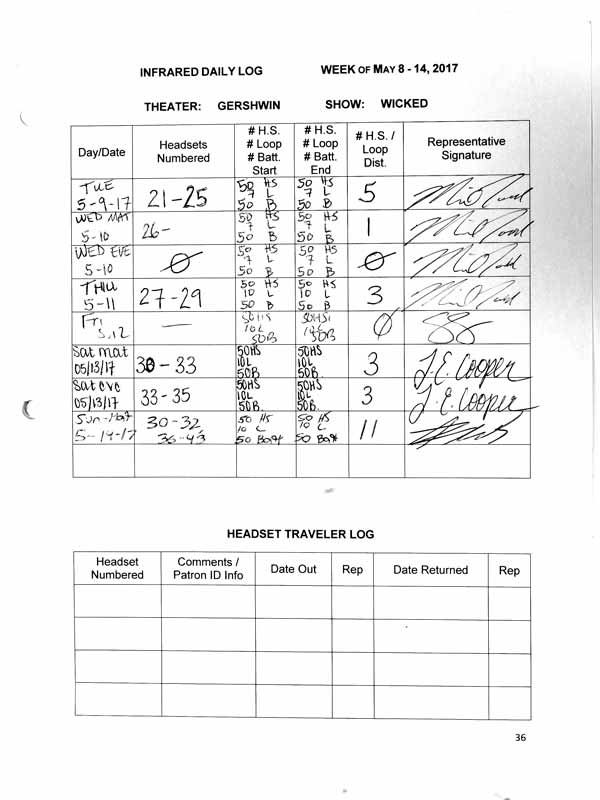 INFRARED DAILY LOG WEEK OF MAY 8 - 14, 2017
THEATER: GERSHWIN SHOW: WICKED
Day/Date Headsets Numbered # H.S. # Loop # Batt. Start # H.S. # Loop # Batt. End # H.S. / Loop Dist. Representative Signature
TUE 5-9-17 21-25 50 HS 7 L 50 B 50 HS 7 L 50 B 5
WED MAT 5-10 26- 50 HS 7 L 50 B 50 HS 7 L 50 B 1
WED EVE 5-10 Ø 50 HS 7 L 50 B 50 HS 7 L 50 B Ø
THU 5-11 27-29 50 HS 10 L 50 B 50 HS 10 L 50 B 3
Fri 5.12 — 50HS 10L 50B 50HS 10L 50B Ø
Sat mat 05/13/17 30-33 50HS 10L 50B 50HS 10L 50B 3 J.E. Cooper
Sat eve 05/13/17 33-35 50HS 10L 50B. 50HS 10L 50B. 3 J.E. Cooper
Sun-Mat 5-14-17 30-32 36-43 50 HS 10 L 50 Batt 50 HS 10 L 50 Batt 11
HEADSET TRAVELER LOG
Headset Numbered Comments / Patron ID Info Date Out Rep Date Returned Rep
36